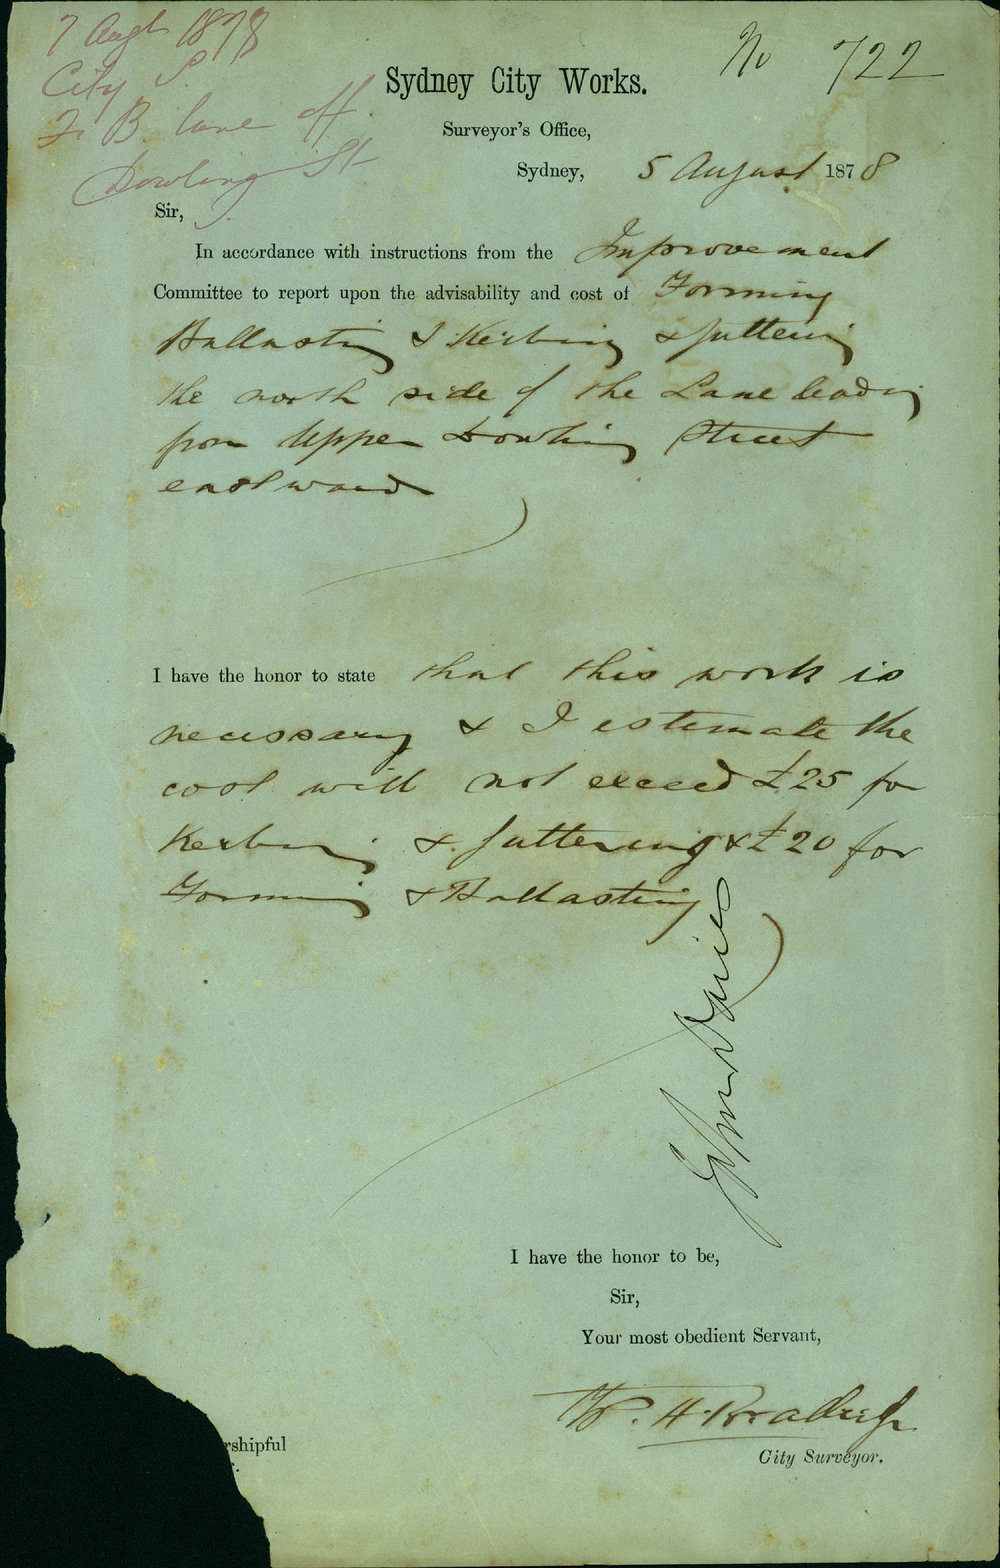 7 Augt 1878
City S
F. B. lane off
Dowling St
No 722
Sydney City Works.
Surveyor's Office,
Sydney, 5 August 1878
Sir,
In accordance with instructions from the Improvement
Committee to report upon the advisability and cost of Forming
Ballasting & Kerbing & guttering
the north side of the Lane leading
from Upper Dowling Street
eastward
I have the honor to state that this work is
necessary & I estemate the
cost will not exceed £25 for
Kerbing & guttering & £20 for
Forming & Ballasting
John Davies
I have the honor to be,
Sir,
Your most obedient Servant,
City Surveyor.
rshipful